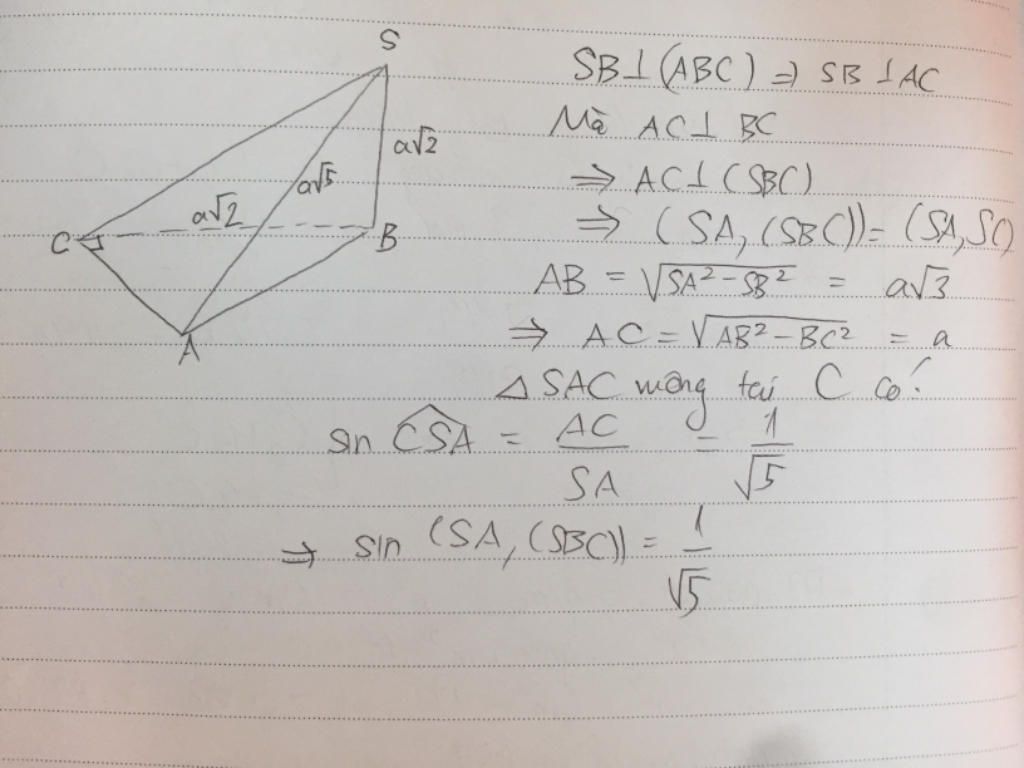 S
a√2
a√5
a√2
C
B
A
SB⊥(ABC) => SB⊥AC
Mà AC⊥BC
=> AC⊥(SBC)
=> (SA, (SBC)) = (SA, SC)
AB = √SA² - SB² = a√3
=> AC = √AB² - BC² = a
△SAC vuông tại C có:
sin CSA = AC/SA = 1/√5
=> sin (SA, (SBC)) = 1/√5